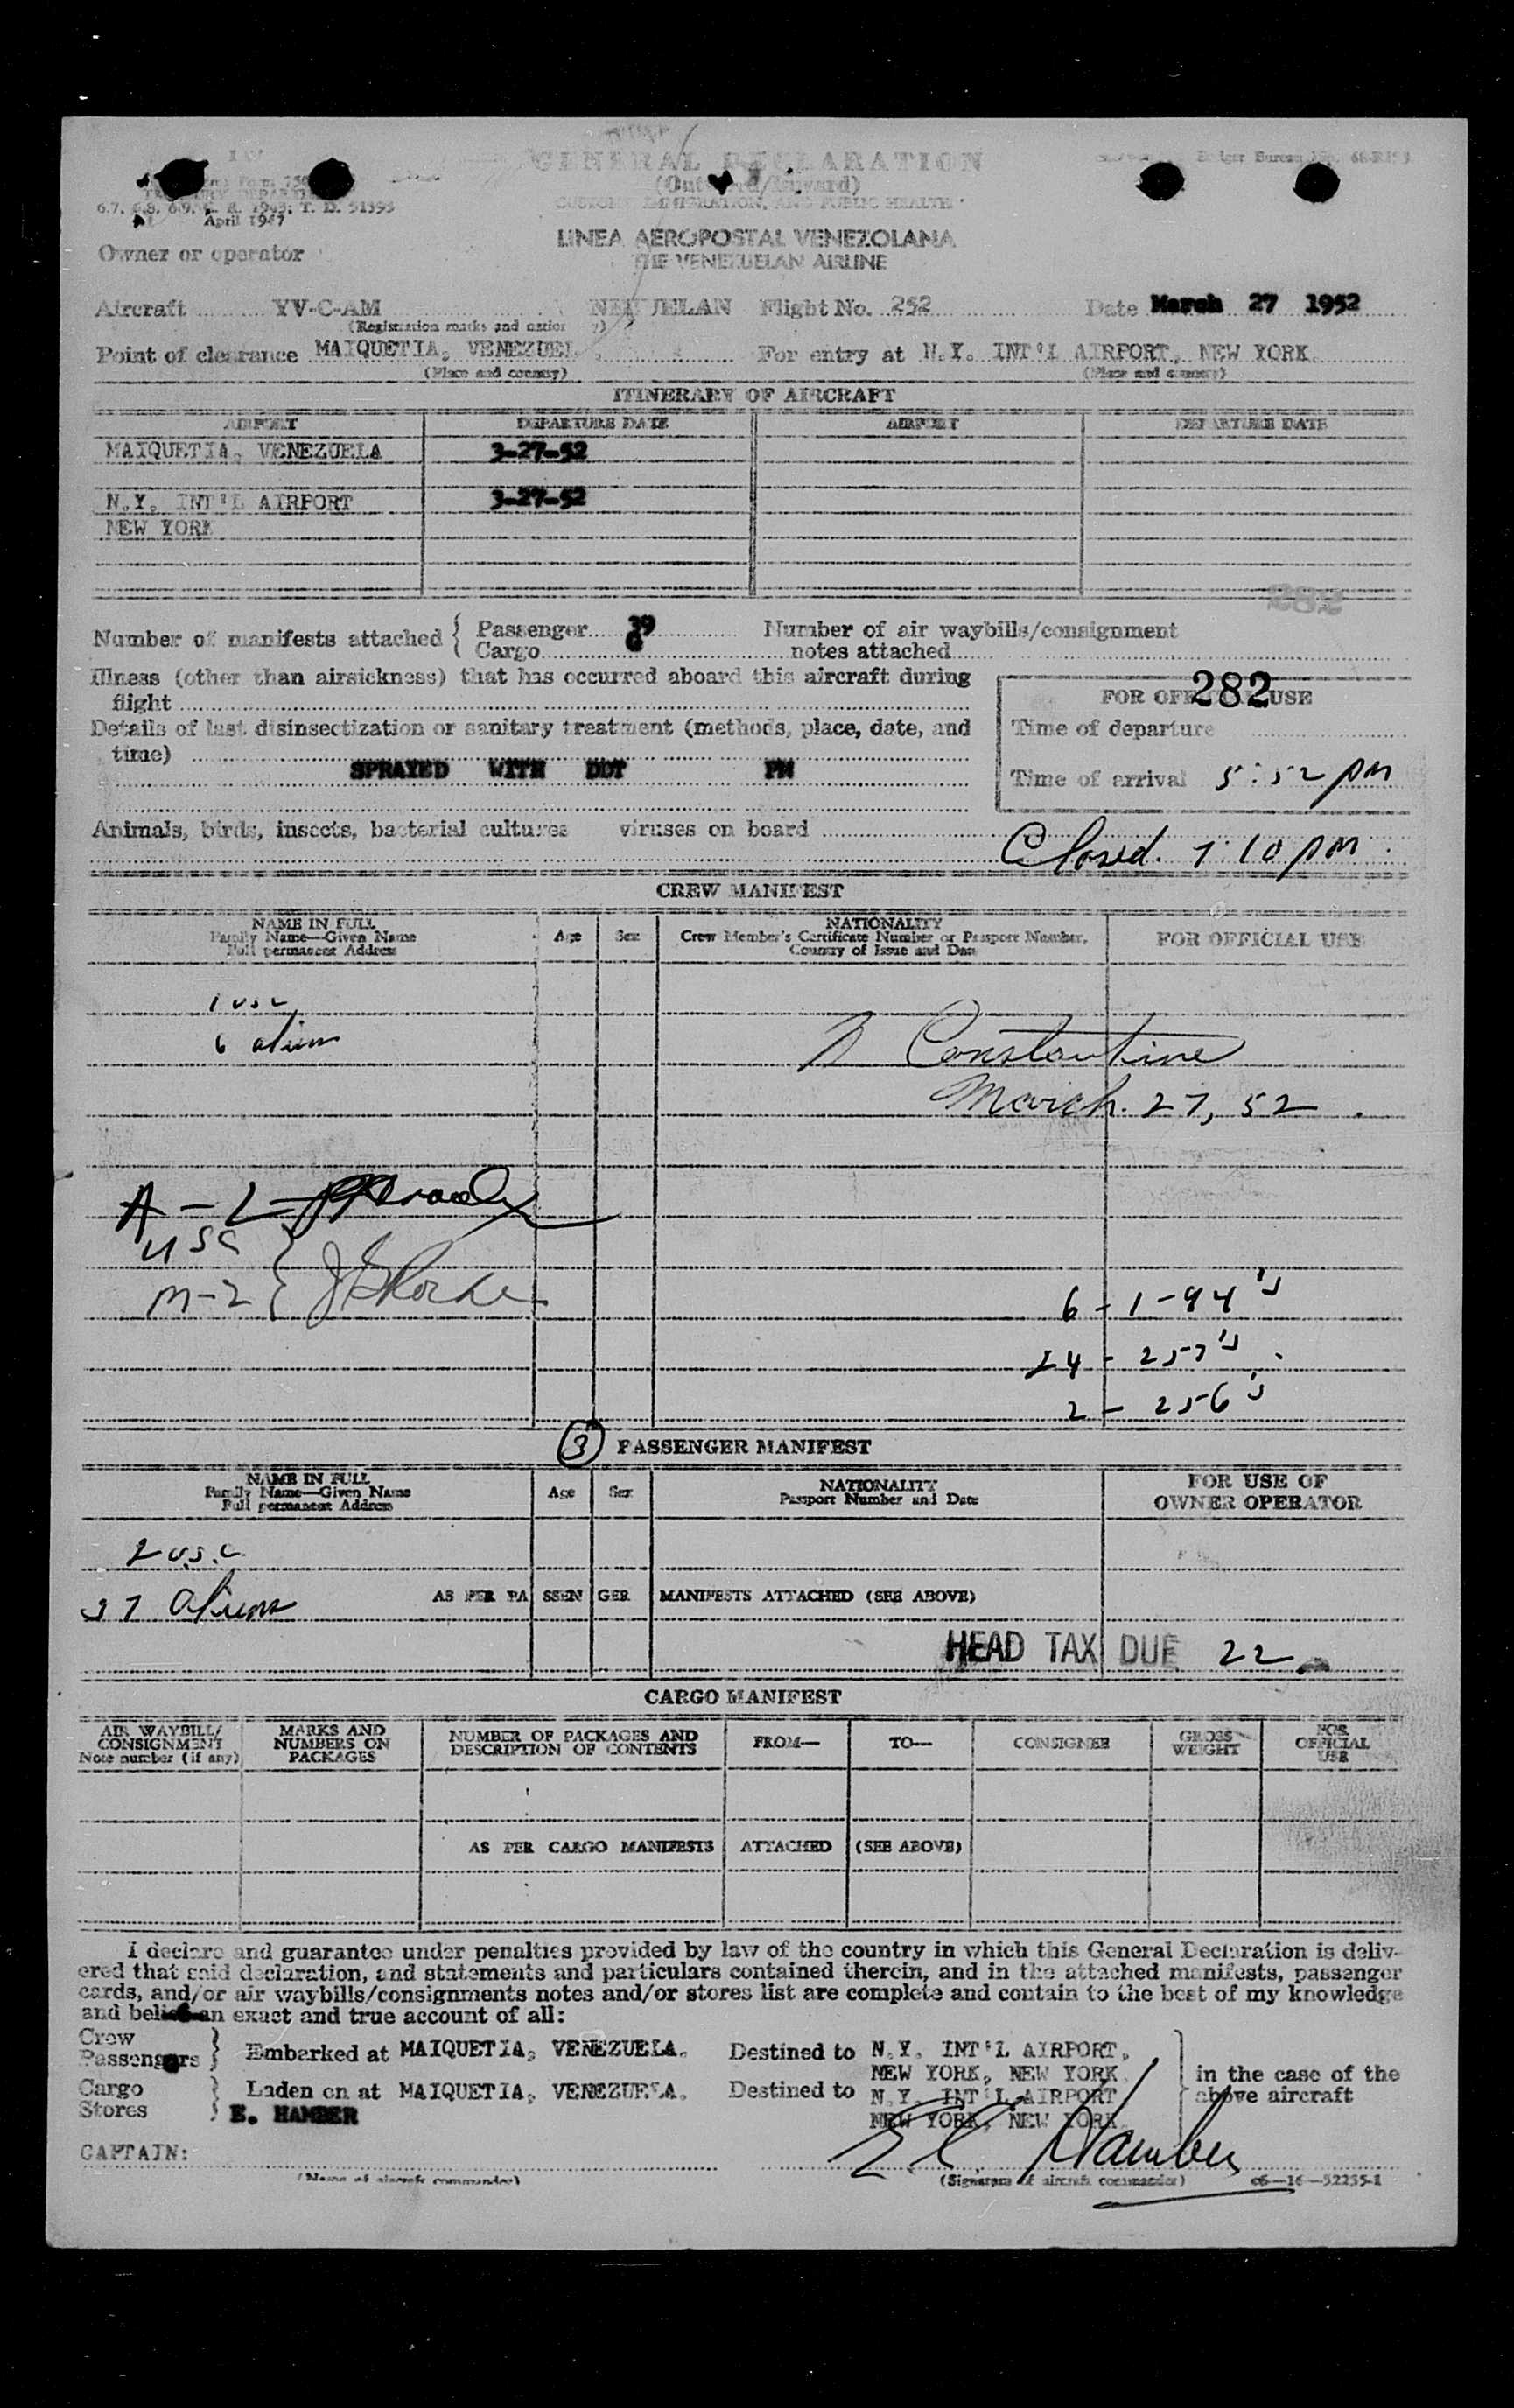 GENERAL DECLARATION
(Outward/Inward)
CUSTOMS, IMMIGRATION, AND PUBLIC HEALTH
6.7, 6.8, 6.9, C. R. 1943; T. D. 51393
April 1947
LINEA AEROPOSTAL VENEZOLANA
THE VENEZUELAN AIRLINE
Owner or operator
Aircraft YV-C-AM Flight No. 252 Date March 27 1952
(Registration marks and nationality)
Point of clearance MAIQUETIA, VENEZUEL For entry at N.Y. INT'L AIRPORT, NEW YORK.
(Place and country) (Place and country)
ITINERARY OF AIRCRAFT
AIRPORT DEPARTURE DATE AIRPORT DEPARTURE DATE
MAIQUETIA, VENEZUELA 3-27-52
N.Y. INT'L AIRPORT 3-27-52
NEW YORK
282
Number of manifests attached { Passenger 39 Number of air waybills/consignment
Cargo 6 notes attached
Illness (other than airsickness) that has occurred aboard this aircraft during
flight
282
FOR OFFICIAL USE
Details of last disinsectization or sanitary treatment (methods, place, date, and
time)
Time of departure
SPRAYED WITH DDT PM
Time of arrival 5:52 pm
Animals, birds, insects, bacterial cultures viruses on board
Closed. 7:10 pm.
CREW MANIFEST
NAME IN FULL
Family Name—Given Name
Full permanent Address
Age Sex
NATIONALITY
Crew Member's Certificate Number or Passport Number,
Country of Issue and Date
FOR OFFICIAL USE
1 usc
6 aliens
Constantine
March. 27, 52.
A - L
usc
m-2 {
6 - 1-94's
24 - 257's.
2 - 256's
(3) PASSENGER MANIFEST
NAME IN FULL
Family Name—Given Name
Full permanent Address
Age Sex
NATIONALITY
Passport Number and Date
FOR USE OF
OWNER OPERATOR
2 u.s.c.
37 aliens
AS PER PASSENGER MANIFESTS ATTACHED (SEE ABOVE)
HEAD TAX DUE 22
CARGO MANIFEST
AIR WAYBILL/
CONSIGNMENT
Note number (if any)
MARKS AND
NUMBERS ON
PACKAGES
NUMBER OF PACKAGES AND
DESCRIPTION OF CONTENTS
FROM— TO— CONSIGNEE
GROSS
WEIGHT
FOR
OFFICIAL
USE
AS PER CARGO MANIFESTS ATTACHED (SEE ABOVE)
I declare and guarantee under penalties provided by law of the country in which this General Declaration is deliv-
ered that said declaration, and statements and particulars contained therein, and in the attached manifests, passenger
cards, and/or air waybills/consignments notes and/or stores list are complete and contain to the best of my knowledge
and belief an exact and true account of all:
Crew
Passengers } Embarked at MAIQUETIA, VENEZUELA. Destined to N.Y. INT'L AIRPORT,
NEW YORK, NEW YORK.
Cargo
Stores } Laden on at MAIQUETIA, VENEZUELA. Destined to N.Y. INT'L AIRPORT
NEW YORK, NEW YORK.
in the case of the
above aircraft
E. HAMBER
CAPTAIN: E. C. Hamber
(Name of aircraft commander) (Signature of aircraft commander) c6—16—52255-1